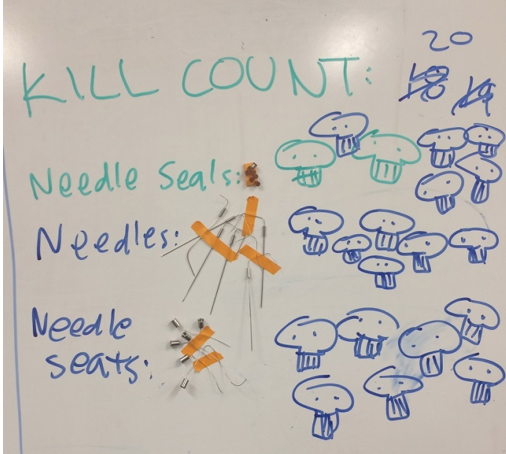 20
KILL COUNT:
Needle Seals:
Needles:
Needle
seats: